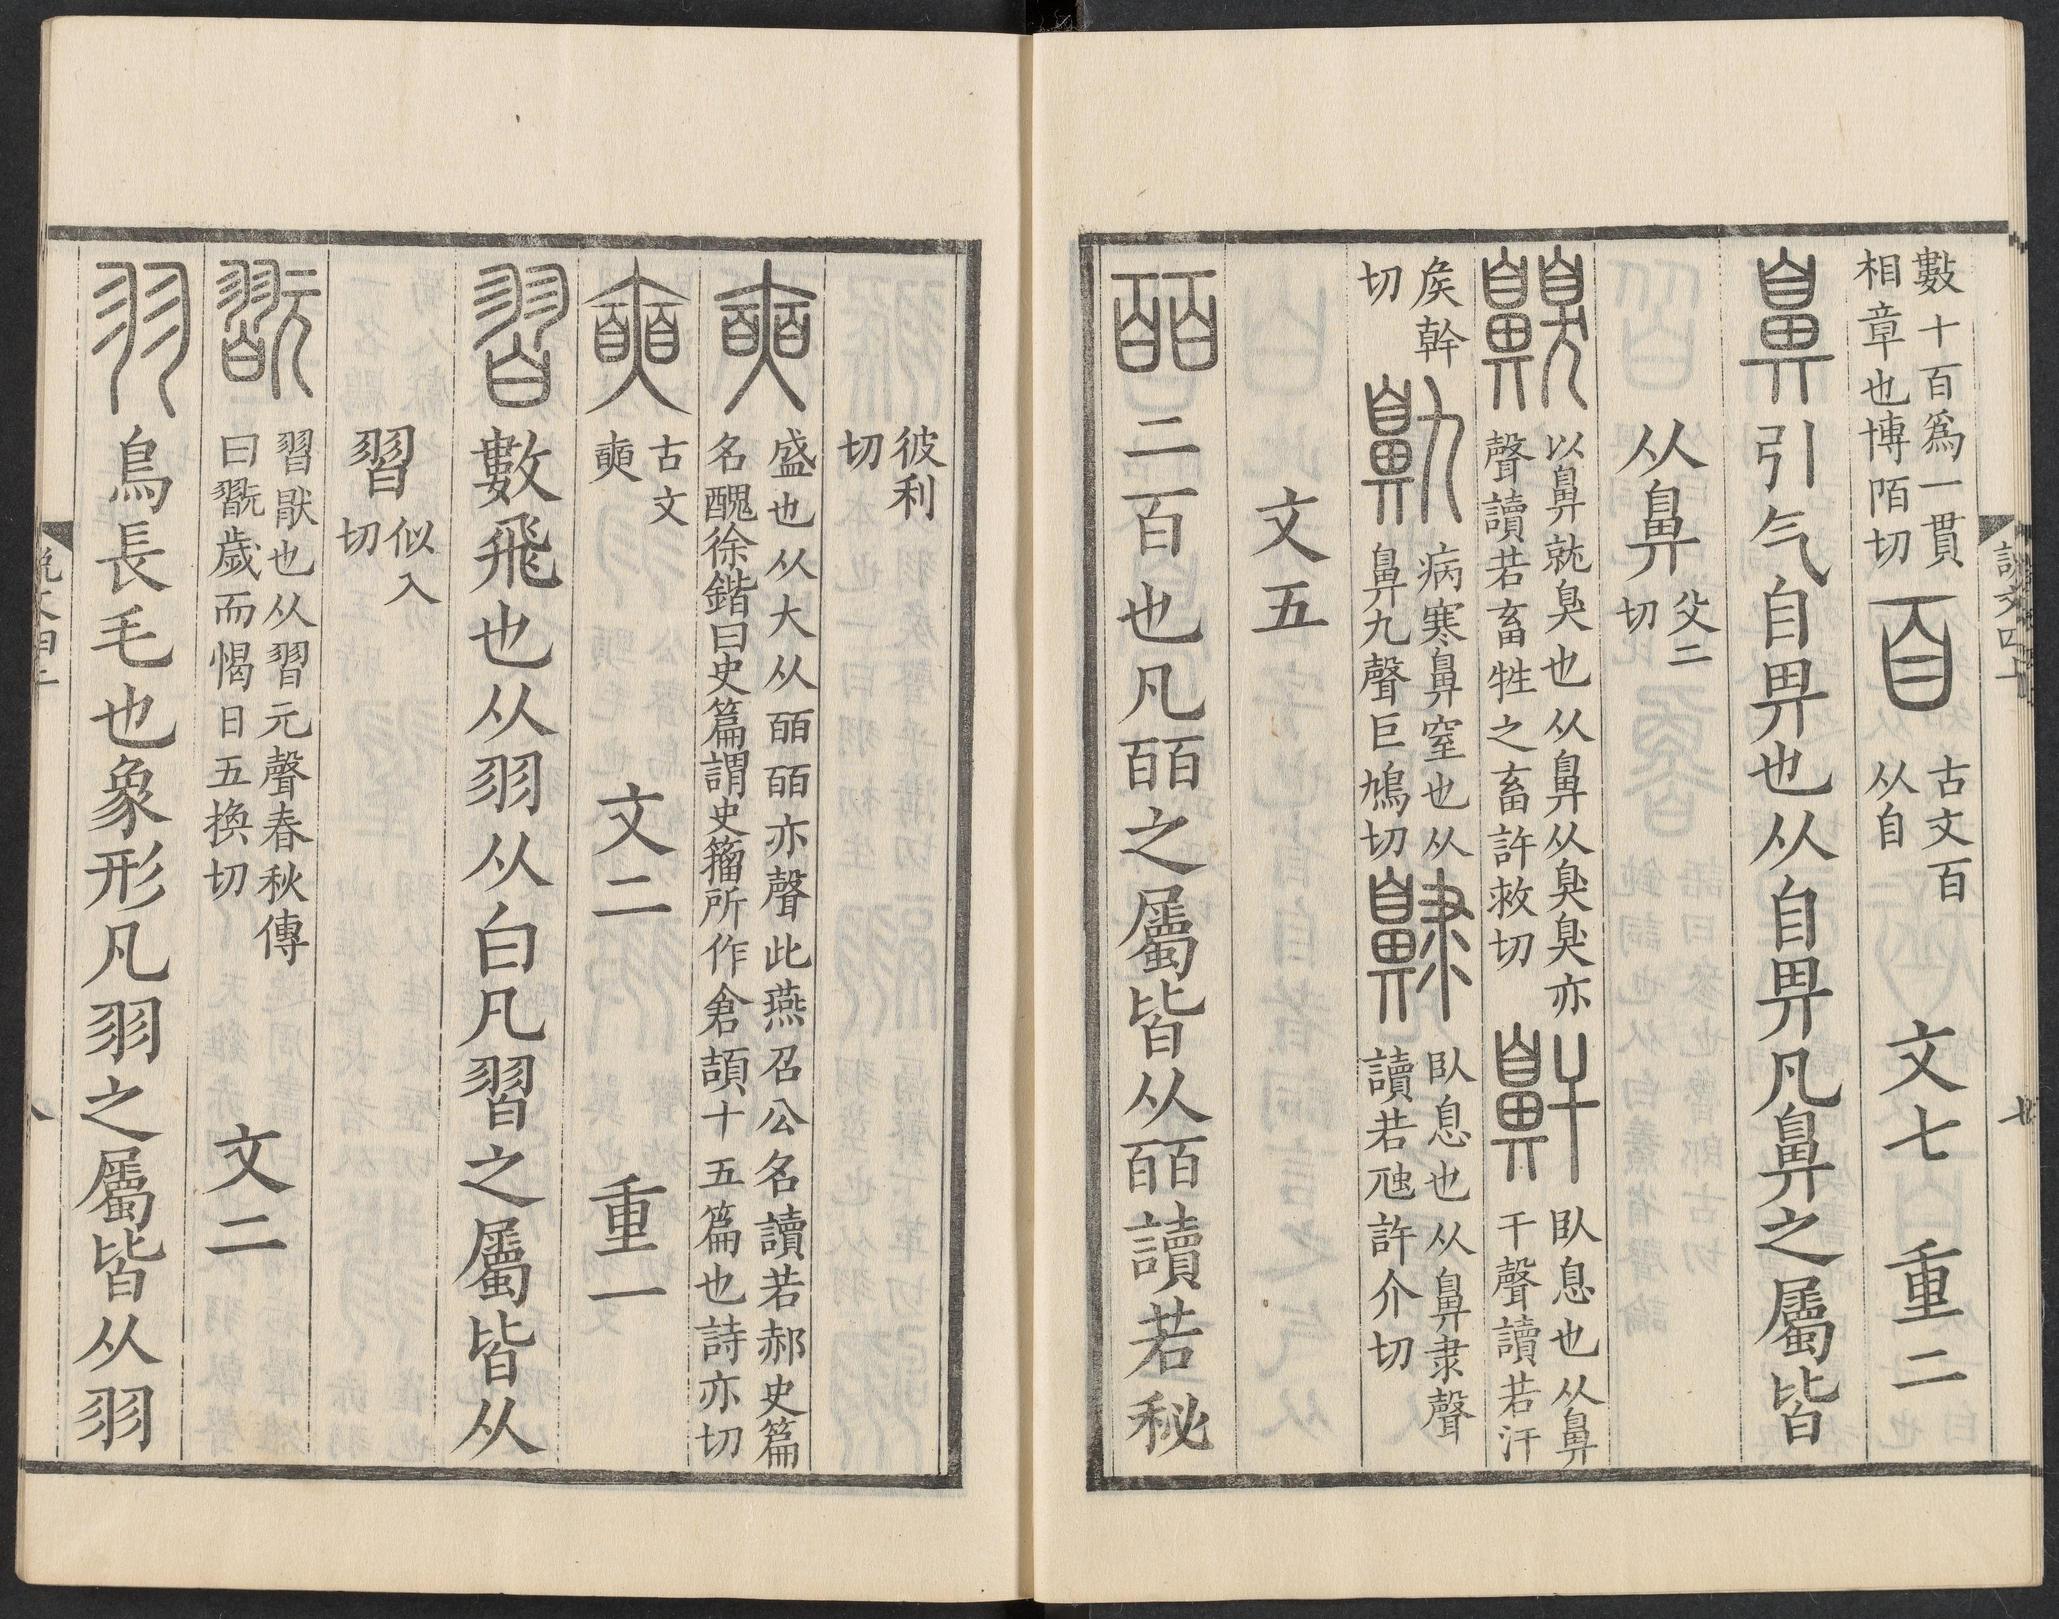 說文四上 七
數十百爲一貫
相章也博陌切
百
古文百
从自
文七 重二
鼻引气自畀也从自畀凡鼻之屬皆
从鼻
父二
切
齅
以鼻就臭也从鼻从臭臭亦
聲讀若畜牲之畜許救切
鼾
臥息也从鼻
干聲讀若汗
矦幹
切
鼽
病寒鼻窒也从
鼻九聲巨鳩切
䶐
臥息也从鼻隶聲
讀若虺許介切
文五
皕二百也凡皕之屬皆从皕讀若秘
彼利
切
奭
盛也从大从皕皕亦聲此燕召公名讀若郝史篇
名醜徐鍇曰史篇謂史籀所作倉頡十五篇也詩亦切
奭
古文
奭
文二 重一
習數飛也从羽从白凡習之屬皆从
習
似入
切
翫
習猒也从習元聲春秋傳
曰翫歲而愒日五換切
文二
羽鳥長毛也象形凡羽之屬皆从羽
說文四上 八